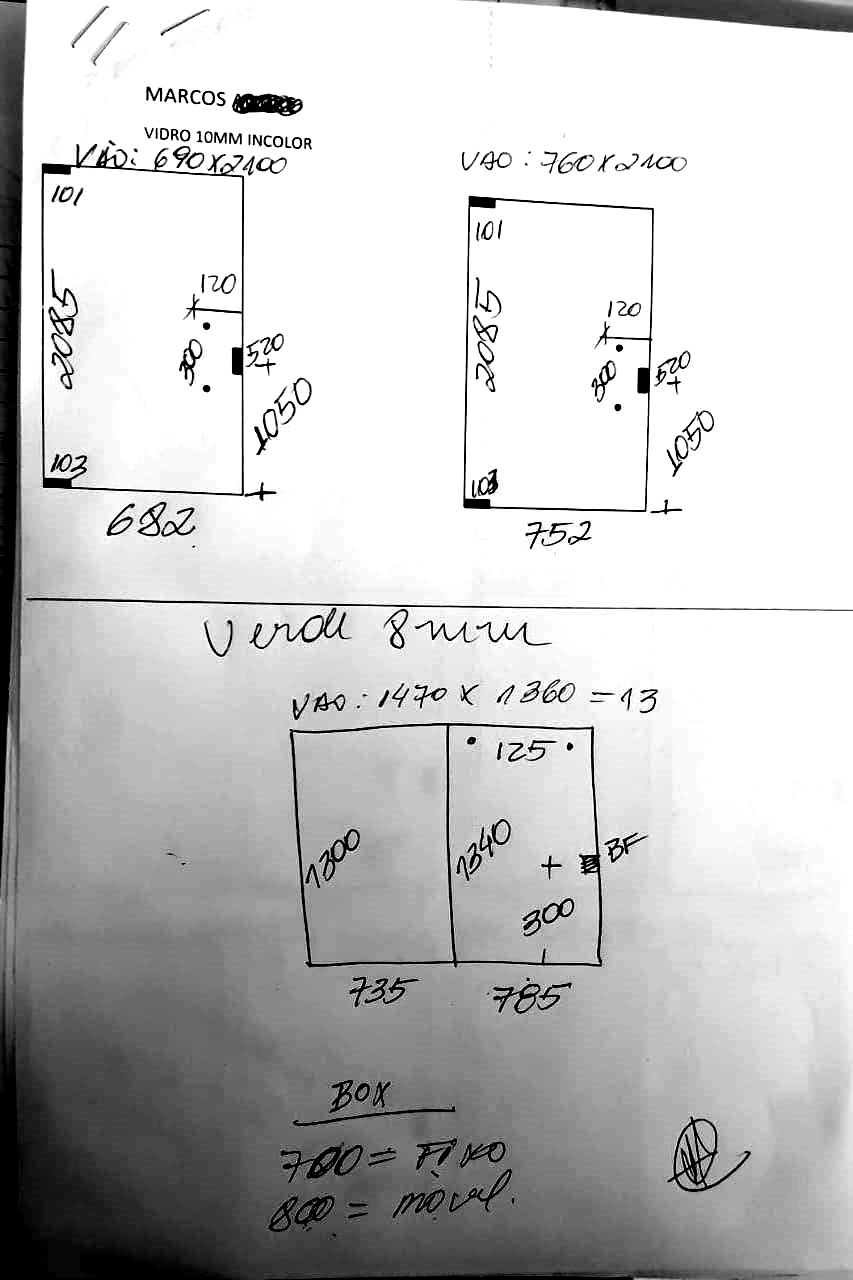 MARCOS
VIDRO 10MM INCOLOR
VÃO: 690X2100
101
2085
120
300
520
1050
103
682
VAO: 760X2100
101
2085
120
300
520
1050
103
752
Verde 8mm
VAO: 1470 X 1360 = 13
125
1300
1340
BF
300
735
785
BOX
700 = FIXO
800 = móvel.